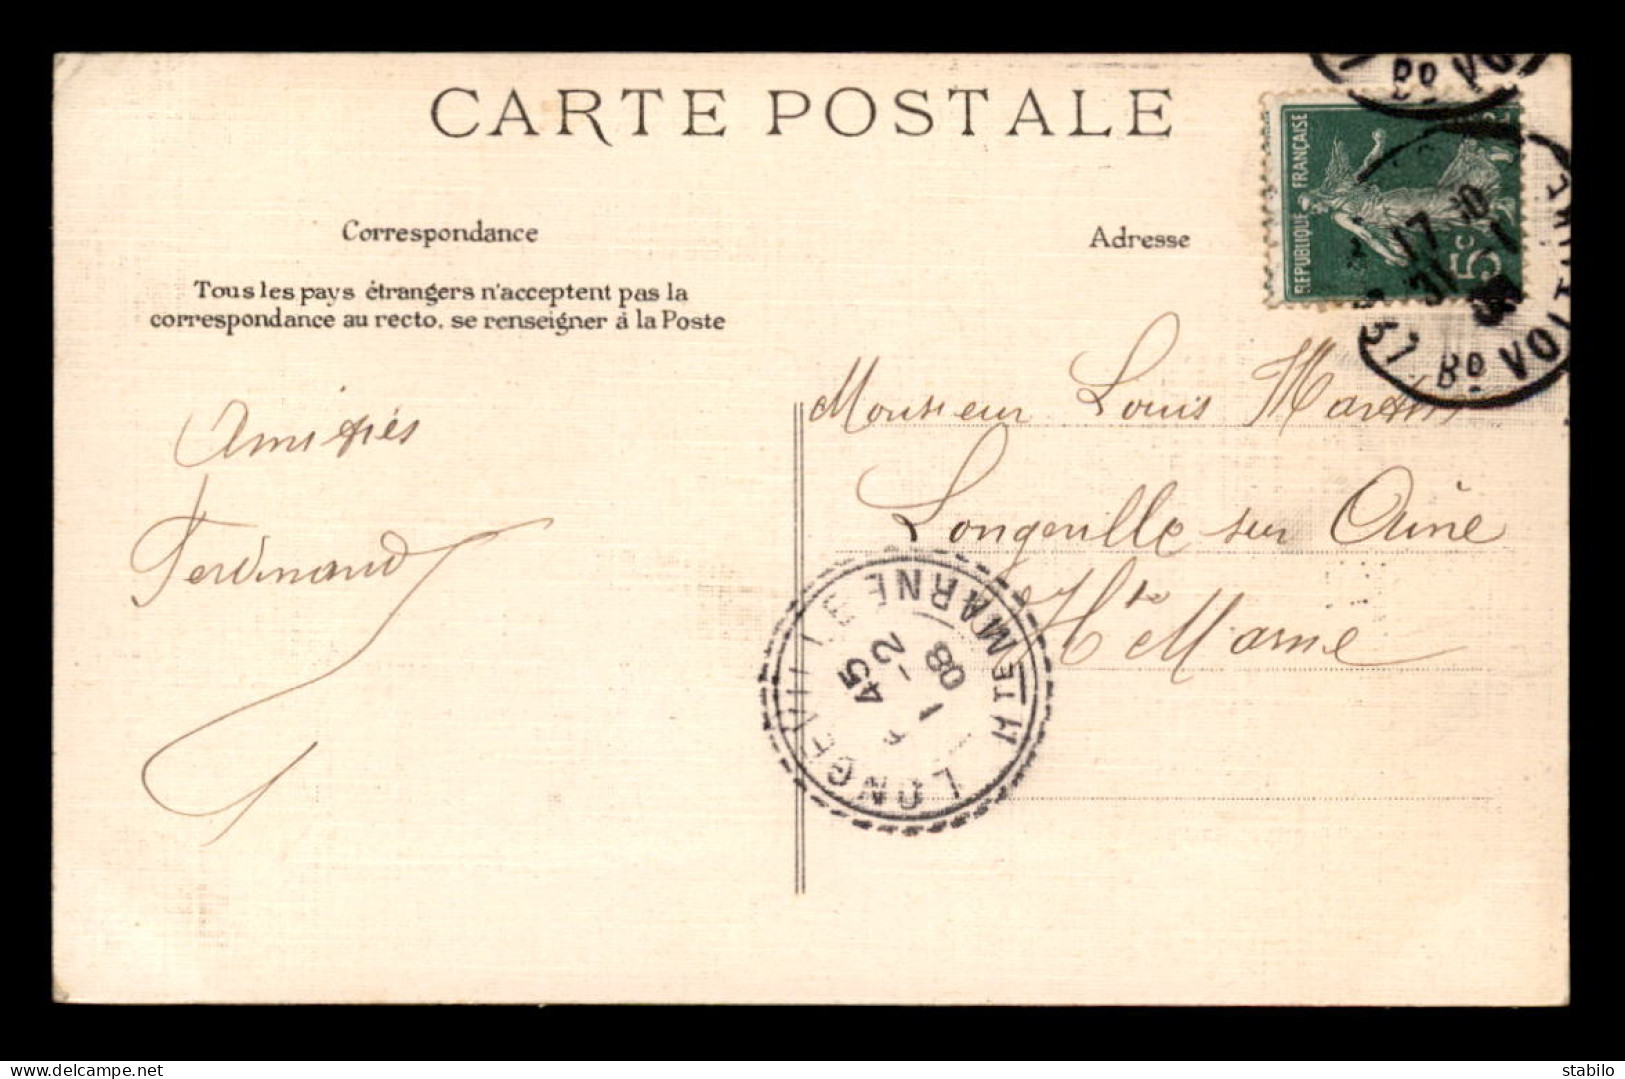 CARTE POSTALE
Correspondance
Tous les pays étrangers n'acceptent pas la
correspondance au recto, se renseigner à la Poste
Adresse
REPUBLIQUE FRANÇAISE
5c
17 10
31 - 1
08
57 Bd VOLTAIRE
Bd VO
Amitiés
Ferdinand
Monsieur Louis Martin
Longeville sur Aine
Hte Marne
LONGEVILLE
HTE MARNE
45
1 - 2
08
delcampe.net
stabilo